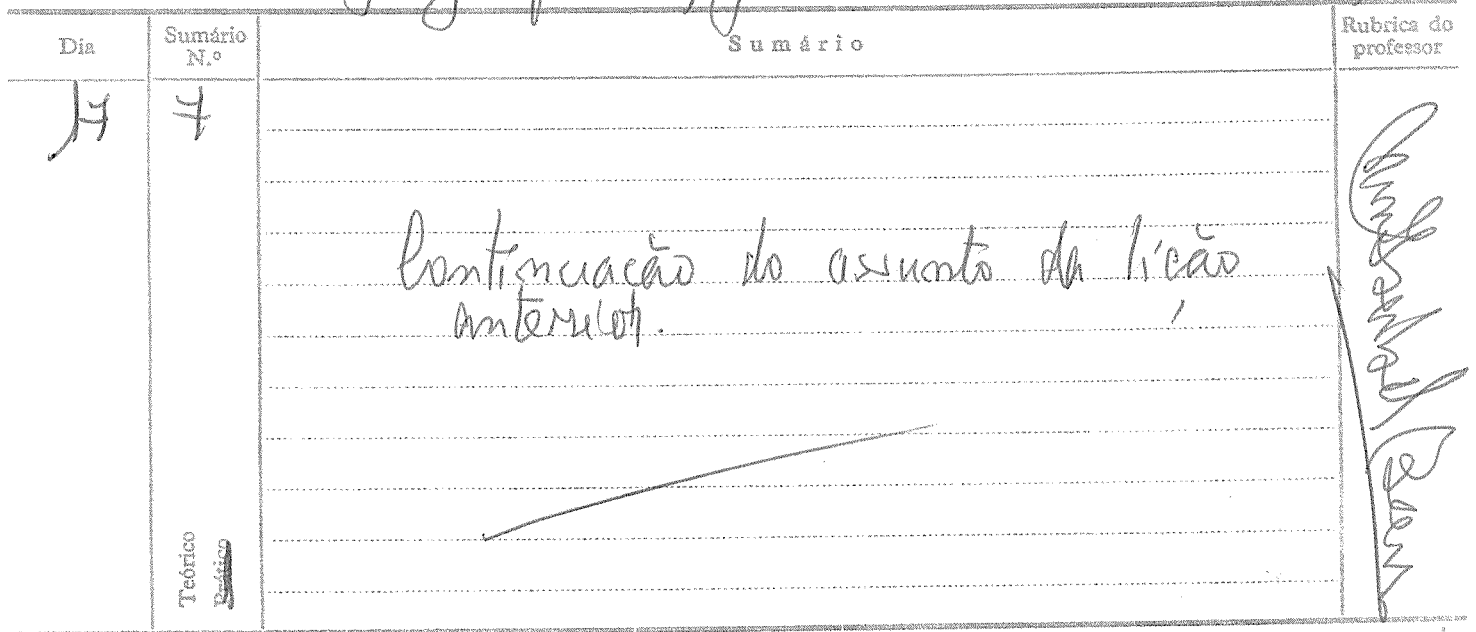 Dia
Sumário
N.º
Sumário
Rubrica do
professor
17
7
Continuação do assunto da lição
anterior.
Teórico
Prático